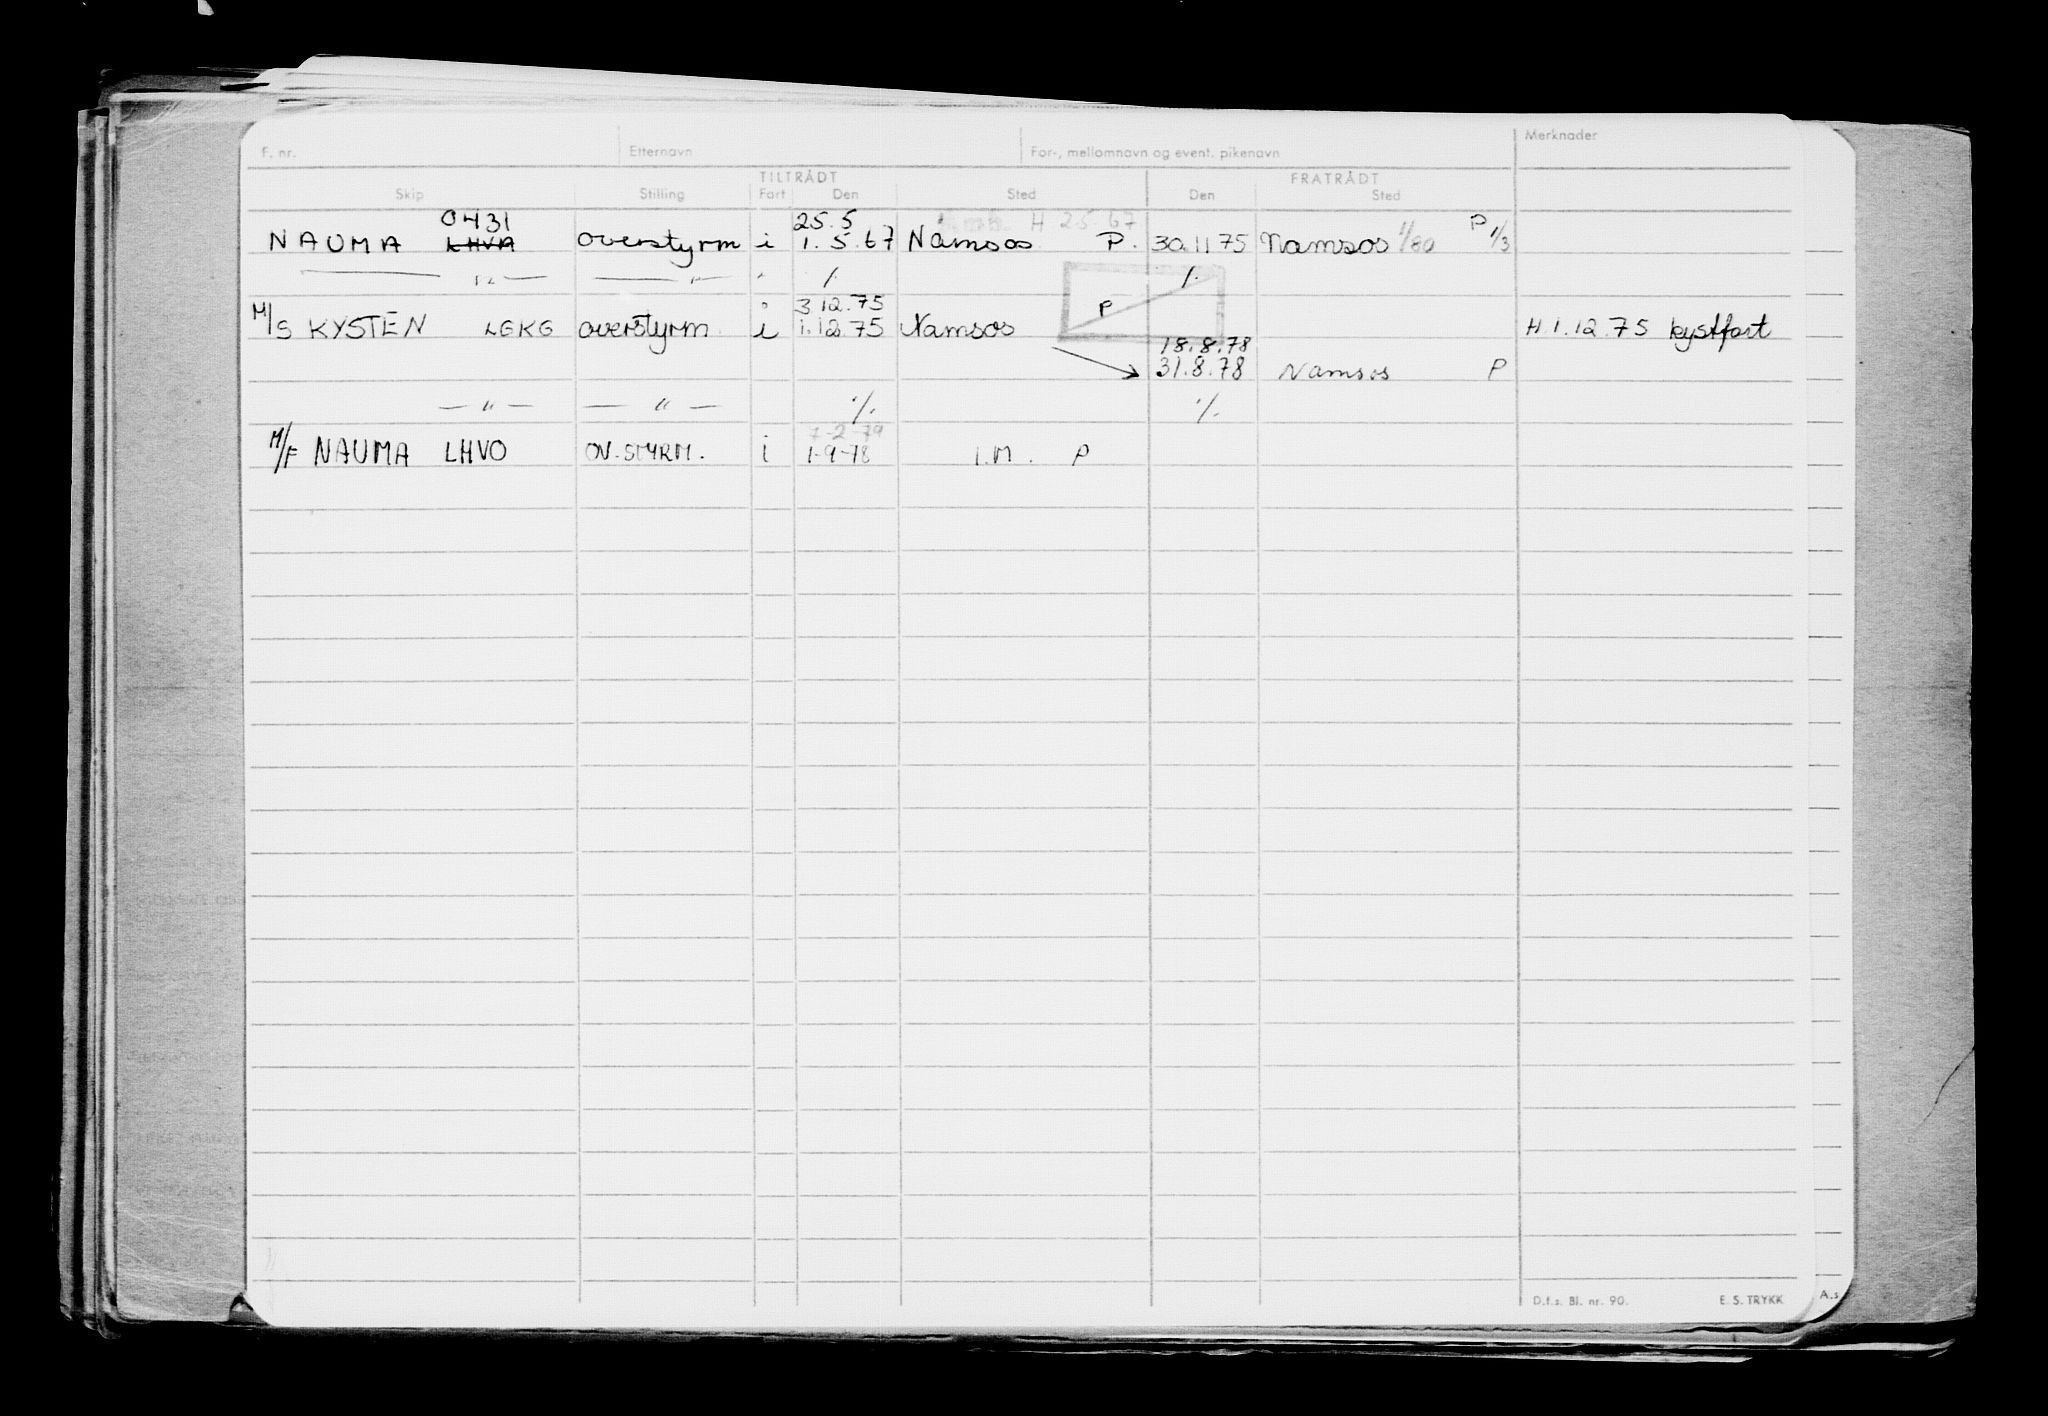 F. nr. Etternavn For-, mellomnavn og event. pikenavn Merknader
TILTRÅDT FRATRÅDT
Skip Stilling Fart Den Sted Den Sted
0431 25.5 H 25.67 P
NAUMA LHVA overstyrm i 1.5.67 Namsos P. 30.11 75 Namsos 1/80 1/3
— " — — " — " /. /.
3 12.75 P
M/S KYSTEN LGKG overstyrm i 1.12.75 Namsos H.1.12.75 kystfart
18.8.78
31.8.78 Namsos P
— " — — " — ·/. ·/.
7-2-79
M/F NAUMA LHVO OV.STYRM. i 1-9-78 I.M. P
D.f.s. Bl. nr. 90. E. S. TRYKK A.s